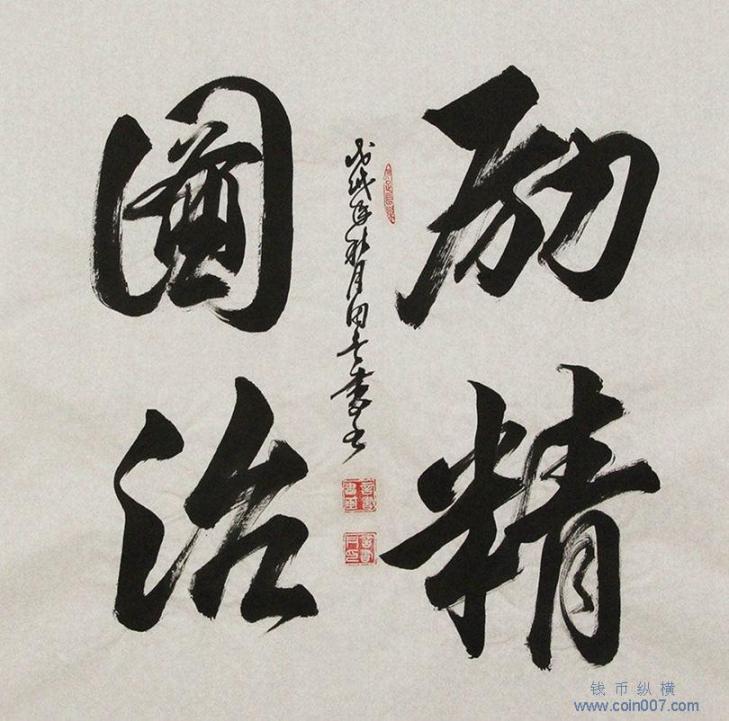 励精
圖治
戊戌年秋月
钱币纵横
www.coin007.com